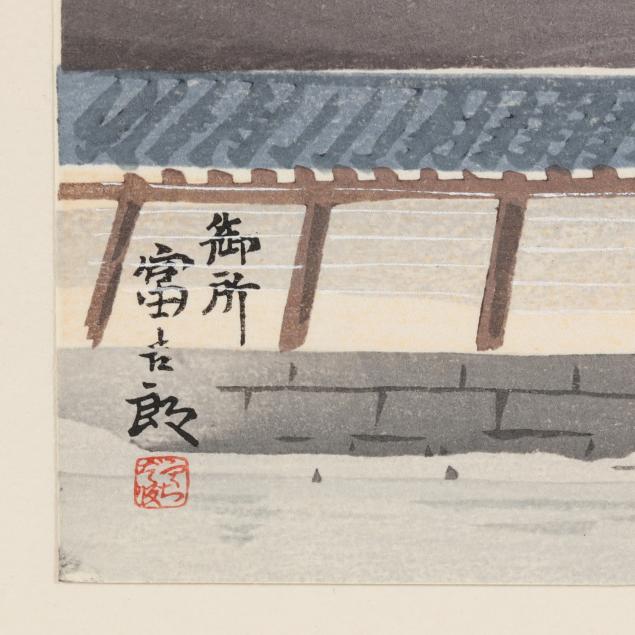 御所
富吉郎